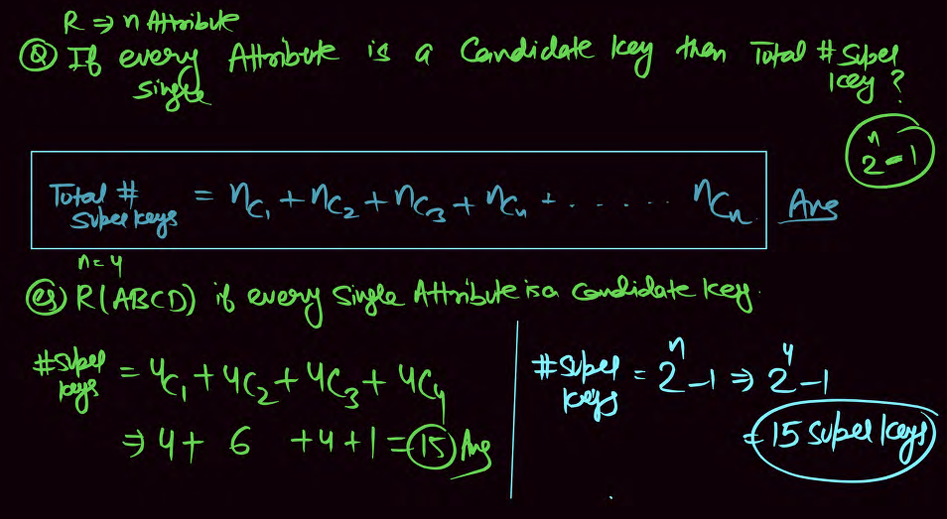 R ⇒ n Attribute
Q If every single Attribute is a Candidate key then Total # Super key ?
2ⁿ - 1
Total # Super keys = nC₁ + nC₂ + nC₃ + nC₄ + . . . . . . nCₙ Ans
n=4
eg) R(ABCD) if every Single Attribute is a Candidate key.
# Super keys = 4C₁ + 4C₂ + 4C₃ + 4C₄
⇒ 4 + 6 + 4 + 1 = 15 Ans
# Super keys = 2ⁿ - 1 ⇒ 2⁴ - 1
= 15 Super keys